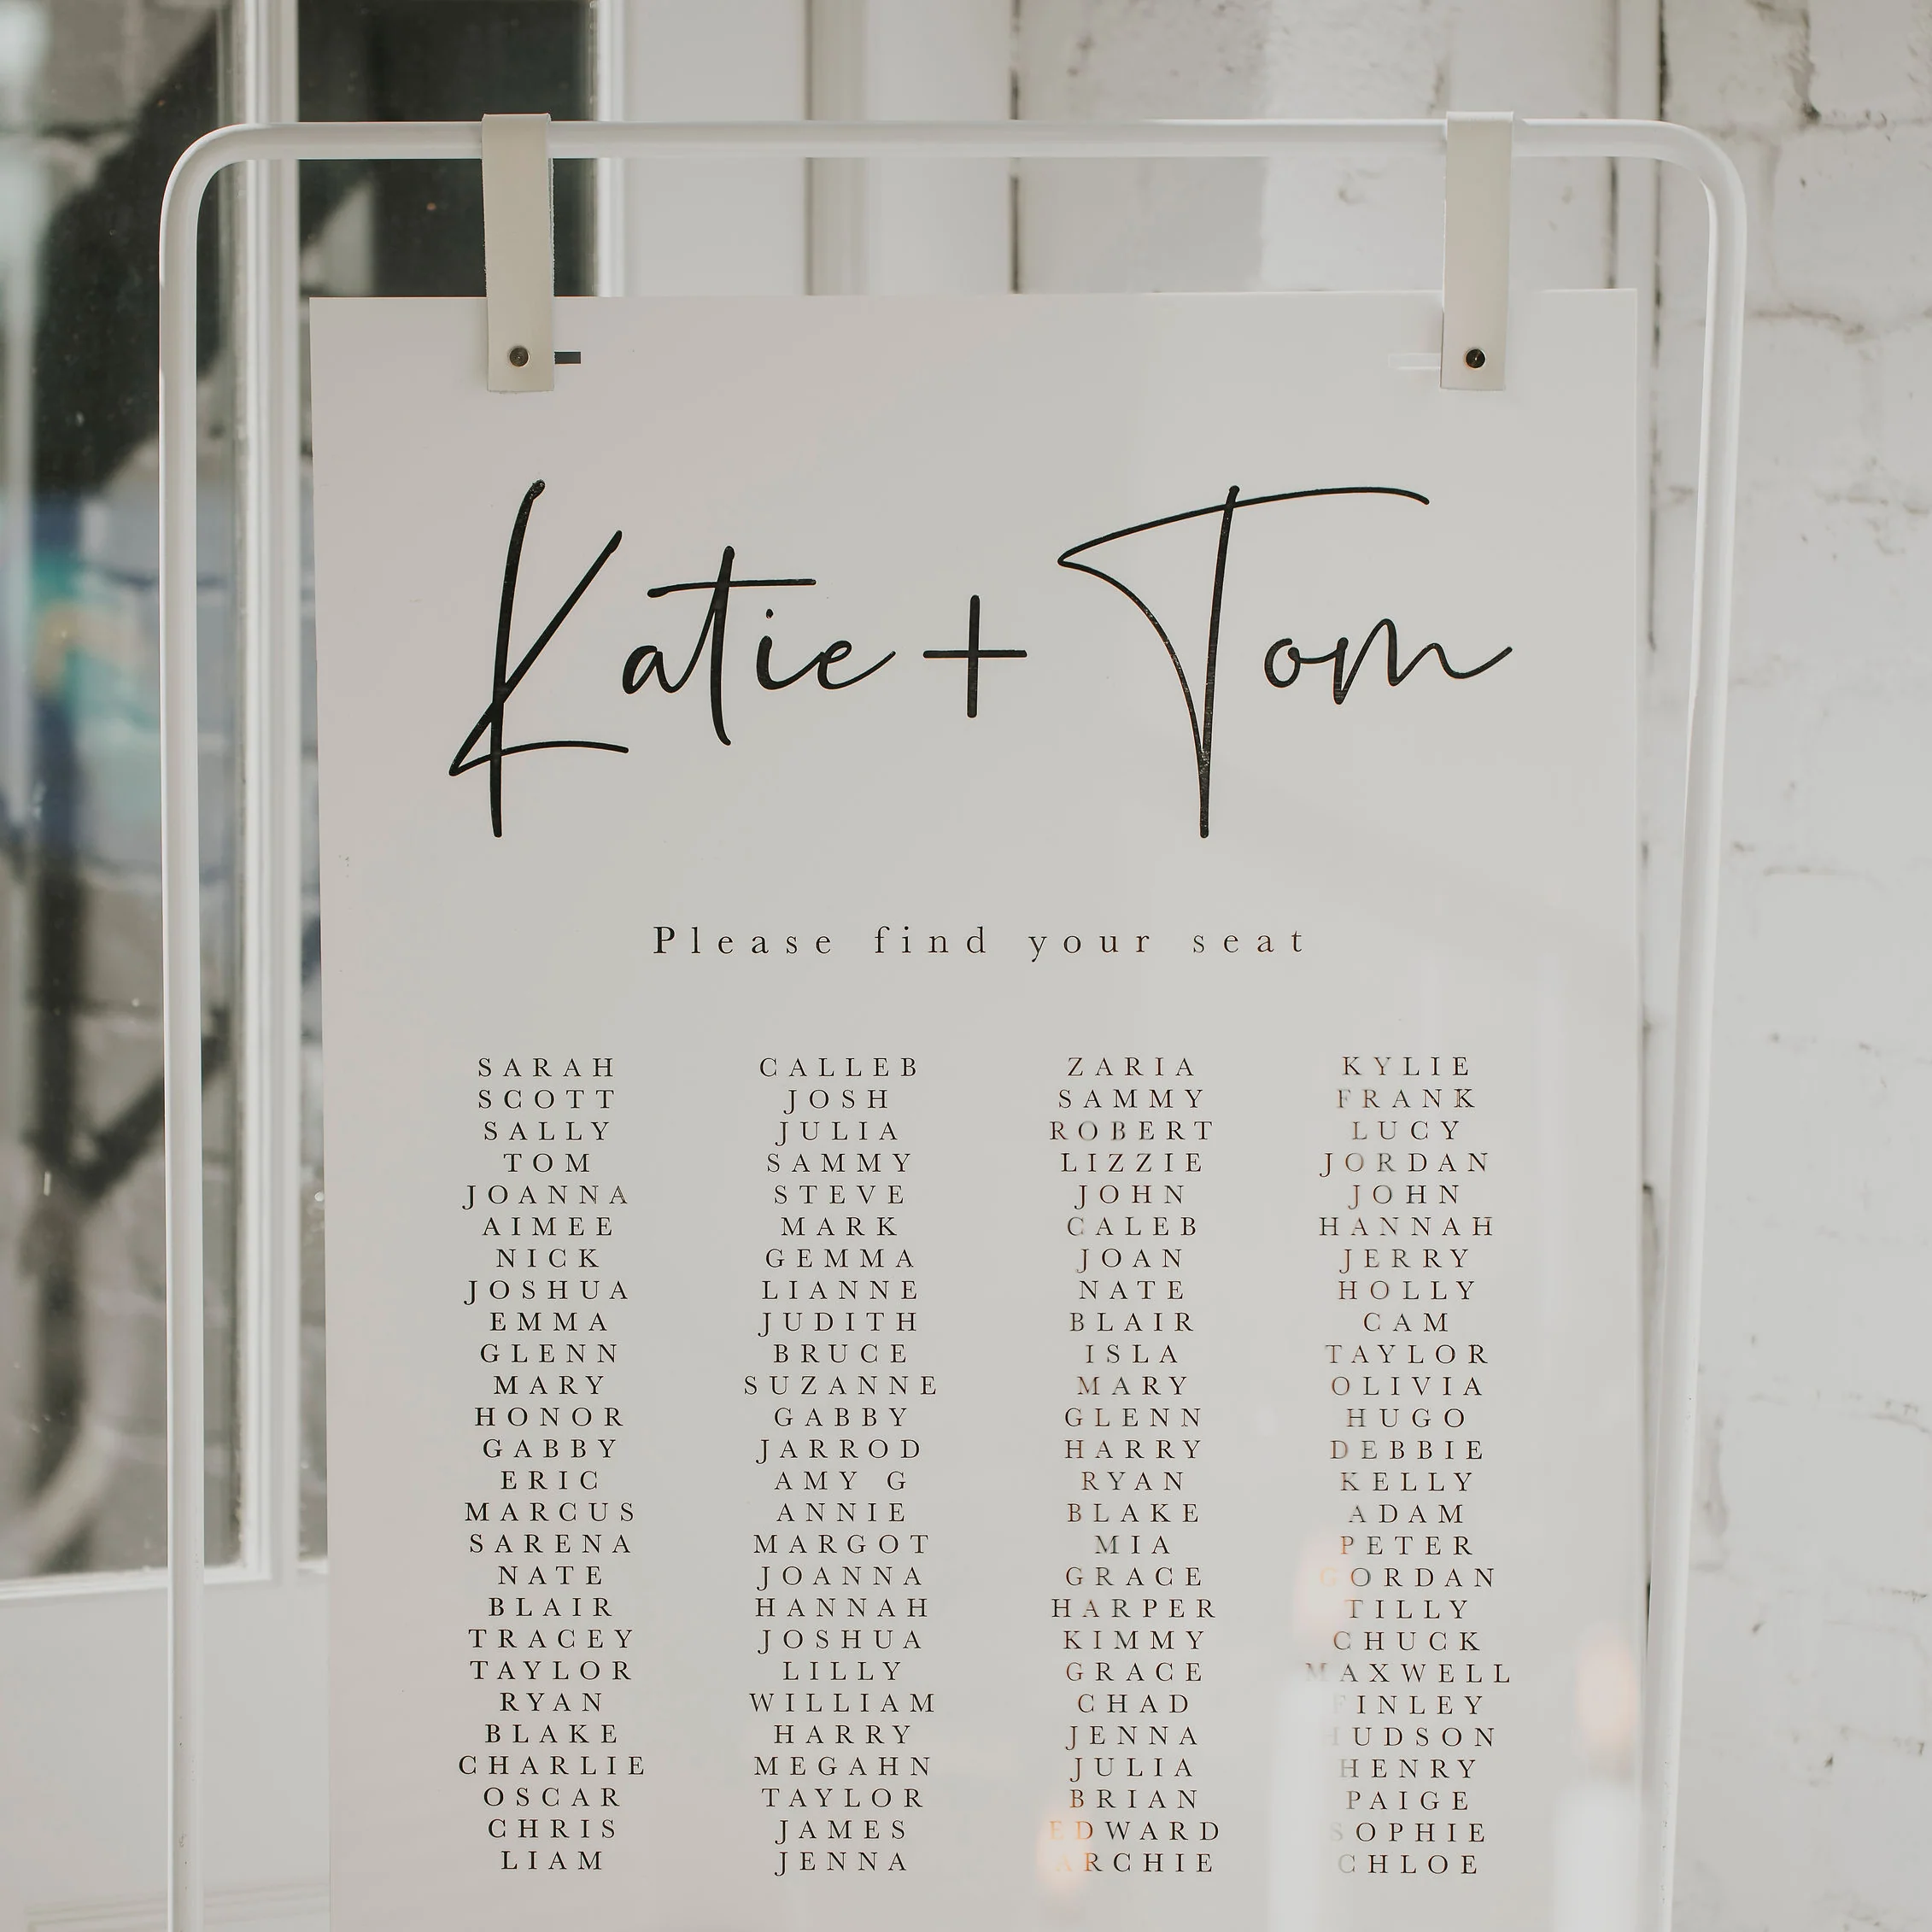 Katie + Tom
Please find your seat
SARAH CALLEB ZARIA KYLIE
SCOTT JOSH SAMMY FRANK
SALLY JULIA ROBERT LUCY
TOM SAMMY LIZZIE JORDAN
JOANNA STEVE JOHN JOHN
AIMEE MARK CALEB HANNAH
NICK GEMMA JOAN JERRY
JOSHUA LIANNE NATE HOLLY
EMMA JUDITH BLAIR CAM
GLENN BRUCE ISLA TAYLOR
MARY SUZANNE MARY OLIVIA
HONOR GABBY GLENN HUGO
GABBY JARROD HARRY DEBBIE
ERIC AMY G RYAN KELLY
MARCUS ANNIE BLAKE ADAM
SARENA MARGOT MIA PETER
NATE JOANNA GRACE GORDAN
BLAIR HANNAH HARPER TILLY
TRACEY JOSHUA KIMMY CHUCK
TAYLOR LILLY GRACE MAXWELL
RYAN WILLIAM CHAD FINLEY
BLAKE HARRY JENNA HUDSON
CHARLIE MEGAHN JULIA HENRY
OSCAR TAYLOR BRIAN PAIGE
CHRIS JAMES EDWARD SOPHIE
LIAM JENNA ARCHIE CHLOE